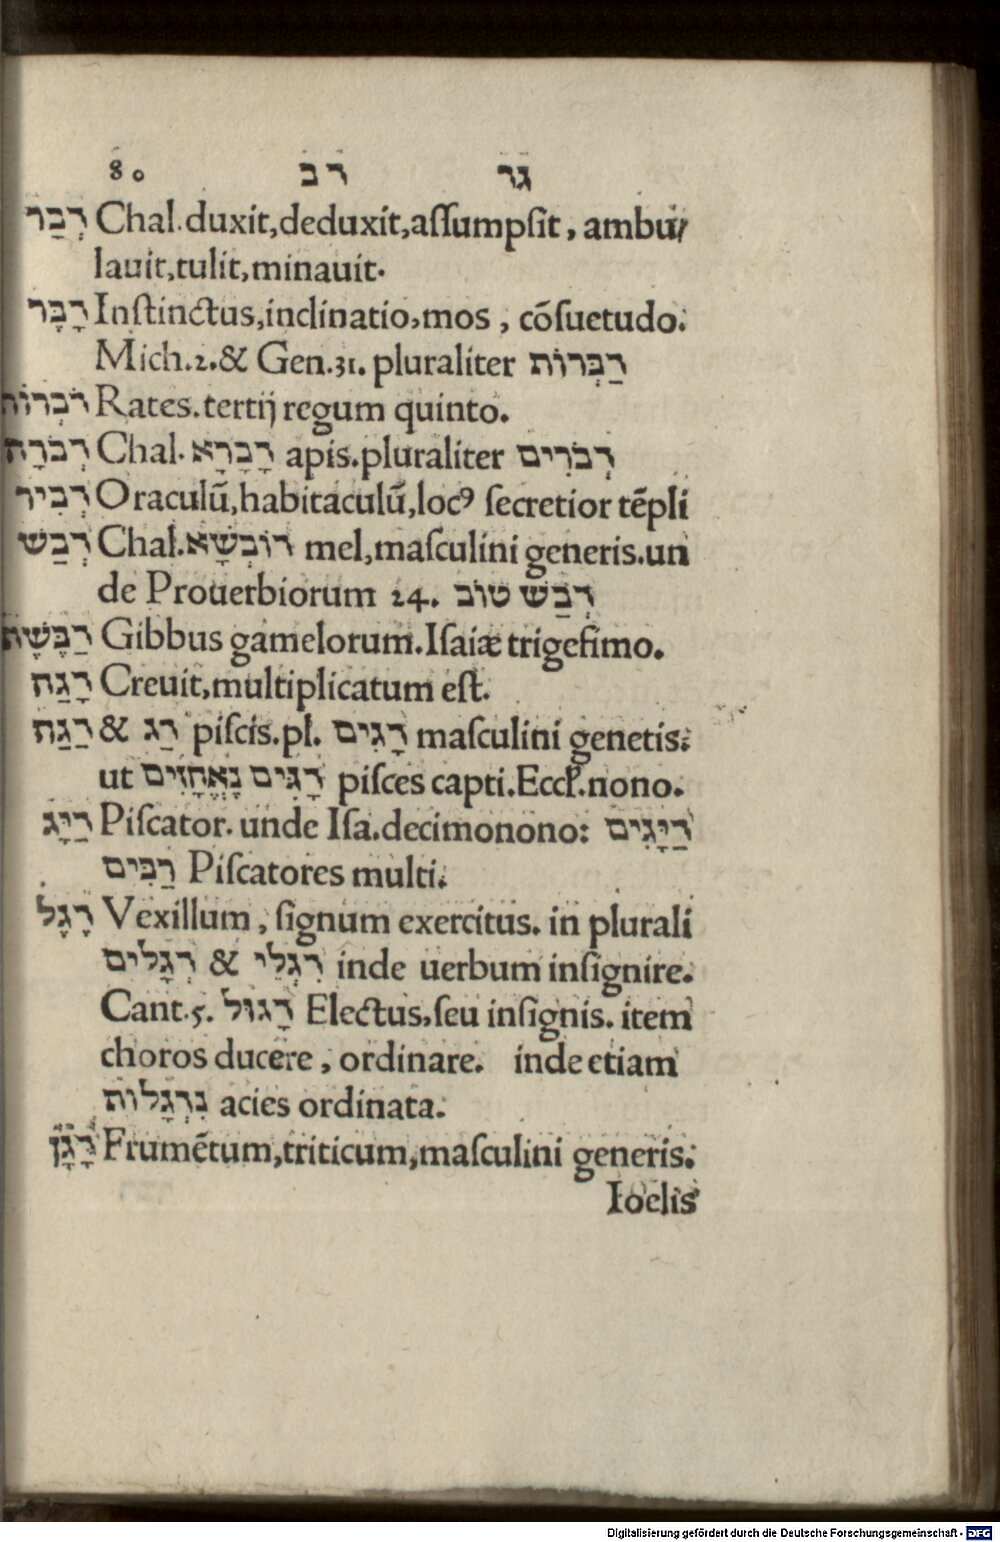 80 דב גד
דְבַר Chal. duxit, deduxit, aſſumpſit, ambu/
lauit, tulit, minauit.
דָבָּר Inſtinctus, inclinatio, mos, cōſuetudo.
Mich. 2. & Gen. 31. pluraliter דַבְּרוֹת
דֹבְרוֹת Rates. tertij regum quinto.
דְבֹרָה Chal. דָבָרָא apis. pluraliter דְבֹרִים
דְבִיר Oraculū, habitaculū, locꝰ ſecretior tēpli
דְבַשׁ Chal. דוֹבְשָׁא mel, maſculini generis. un
de Prouerbiorum 24. דְבַשׁ טוֹב
דַבֶּשֶׁת Gibbus gamelorum. Iſaiæ trigeſimo.
דָגַה Creuit, multiplicatum eſt.
דַגַה & דַג piſcis. pl. דָגִים maſculini genetis.
ut דָגִים נָאֱחָזִים piſces capti. Eccl. nono.
דַיָג Piſcator. unde Iſa. decimonono: דַיָגִים
רַבִּים Piſcatores multi.
דָגָל Vexillum, ſignum exercitus. in plurali
דְגָלִים & דִגְלֵי inde uerbum inſignire.
Cant. 5. דָגוּל Electus, ſeu inſignis. item
choros ducere, ordinare. inde etiam
נִדְגָלוֹת acies ordinata.
דָגָן Frumētum, triticum, maſculini generis.
Ioelis
Digitalisierung gefördert durch die Deutsche Forschungsgemeinschaft - DFG